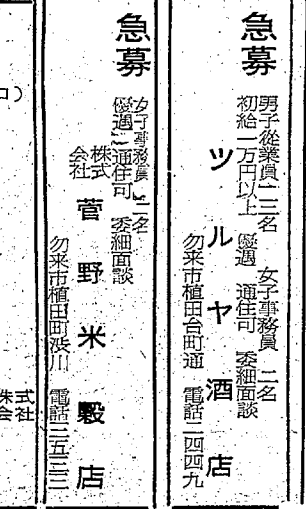 急募
男子従業員 二三名 女子事務員 二名
初給一万円以上 優遇 通住可 委細面談
ツルヤ酒店
勿来市植田台町通 電話二四四九
急募
女子事務員 二名
優遇 通住可 委細面談
株式会社 菅野米穀店
勿来市植田町渋川 電話三五三三
株式会社